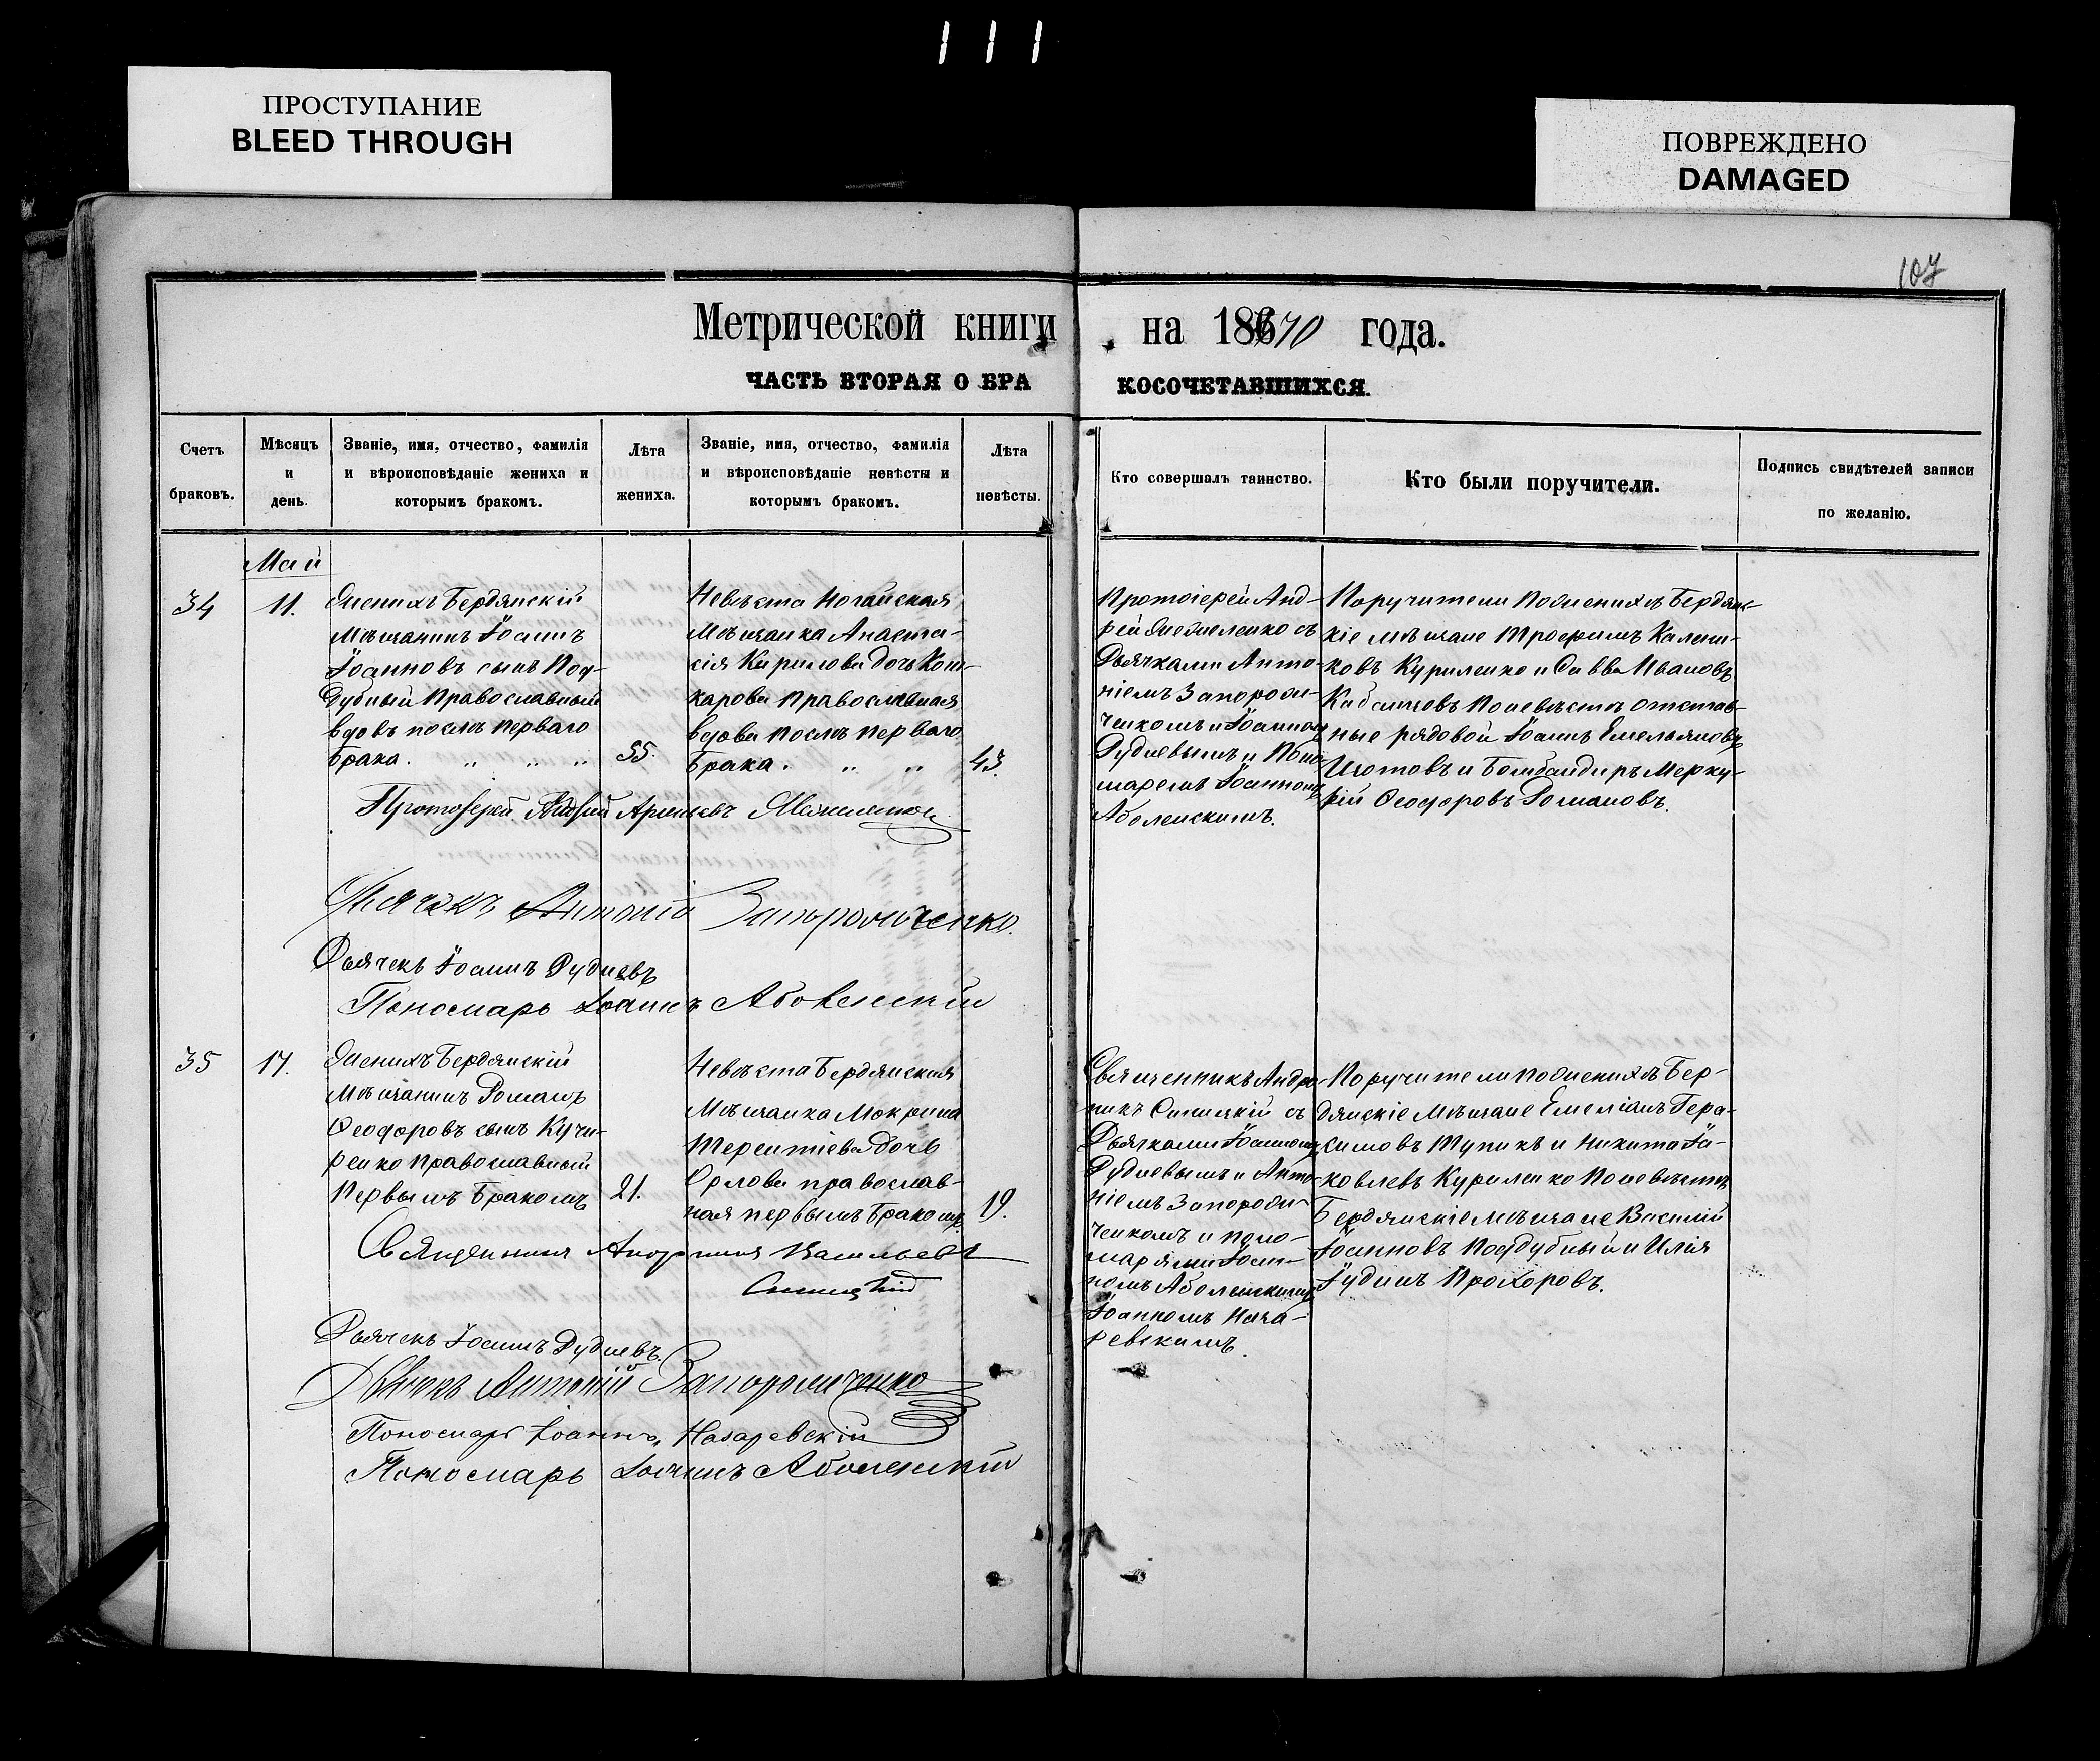 111
ПРОСТУПАНИЕ
BLEED THROUGH
ПОВРЕЖДЕНО
DAMAGED
107
Метрической книги на 1870 года.
ЧАСТЬ ВТОРАЯ О БРАКОСОЧЕТАВШИХСЯ.
Счетъ
браковъ.
Мѣсяцъ
и
день.
Званіе, имя, отчество, фамилія
и вѣроисповѣданіе жениха и
которымъ бракомъ.
Лѣта
жениха.
Званіе, имя, отчество, фамилія
и вѣроисповѣданіе невѣсты и
которымъ бракомъ.
Лѣта
невѣсты.
Кто совершалъ таинство.
Кто были поручители.
Подпись свидѣтелей записи
по желанію.
Май
34
11.
Женихъ Бердянскій
Мѣщанинъ Іоаннъ
Іоанновъ сынъ Под-
дубный Православный
вдовъ послѣ перваго
брака. „ „ „
55.
Невѣста Ногайская
Мѣщанка Анаста-
сія Кирилова дочь
карова Православная
вдова послѣ перваго
брака. „ „
43.
Протоіерей Анд-
рей съ
Дьячками Анто-
ніемъ Запорож-
ченкомъ и Іоанномъ
Рудневымъ и Поно-
маремъ Іоанномъ
Аболенскимъ.
Поручители по женихѣ Бердянс-
кіе мѣщане Трофимъ Калени-
ковъ Куриленко и Савва Ивановъ
по невѣстѣ отстав-
ные рядовой Іоаннъ Емельяновъ
Изотовъ и Бомбандиръ Мерку-
рій Ѳеодоровъ Романовъ.
Протоіерей
Дьячекъ Антоній Запорожченко.
Дьячекъ Іоаннъ Рудневъ
Пономарь Іоаннъ Аболенскій
35
17.
Женихъ Бердянскій
Мѣщанинъ Романъ
Ѳеодоровъ сынъ Кучи-
ренко православный
первымъ бракомъ
21.
Невѣста Бердянская
Мѣщанка Мокрина
Терентіева дочь
Орлова православ-
ная первымъ бракомъ.
19.
Священникъ Андро-
никъ Синицкій съ
Дьячками Іоанномъ
Рудневымъ и Анто-
ніемъ Запорож-
ченкомъ и поно-
марями Іоан-
номъ Аболенскимъ
Іоанномъ Наза-
ревскимъ.
Поручители по женихѣ Бер-
дянскіе Мѣщане Емеліанъ Гера-
симовъ Тупикъ и Никита Іа-
ковлевъ Куриленко по невѣстѣ
Бердянскіе мѣщане Василій
Іоанновъ Поддубный и Илія
Іудинъ Прохоровъ.
Священникъ Андроникъ Васильевъ
Синицкій
Дьячекъ Іоаннъ Рудневъ.
Дьячекъ Антоній Запорожченко
Пономарь Іоаннъ Назаревскій
Пономарь Іоаннъ Аболенскій